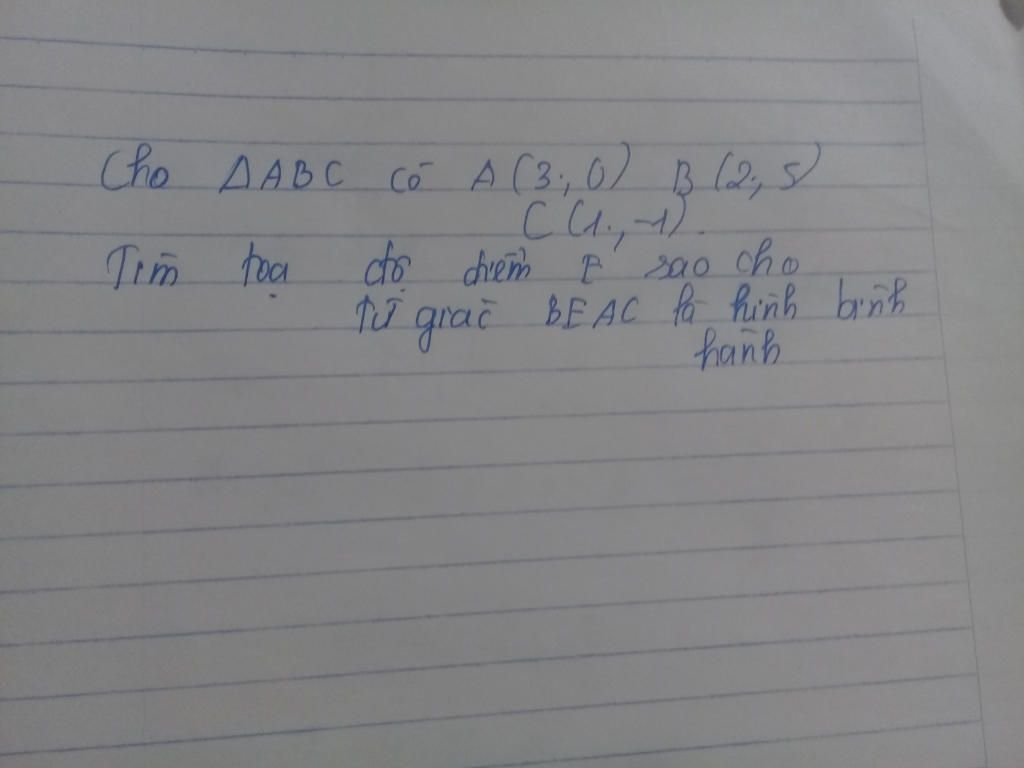 Cho ΔABC có A (3; 0) B (2; 5)
C (1; -1).
Tìm tọa độ điểm E sao cho
Tứ giác BEAC là hình bình
hành